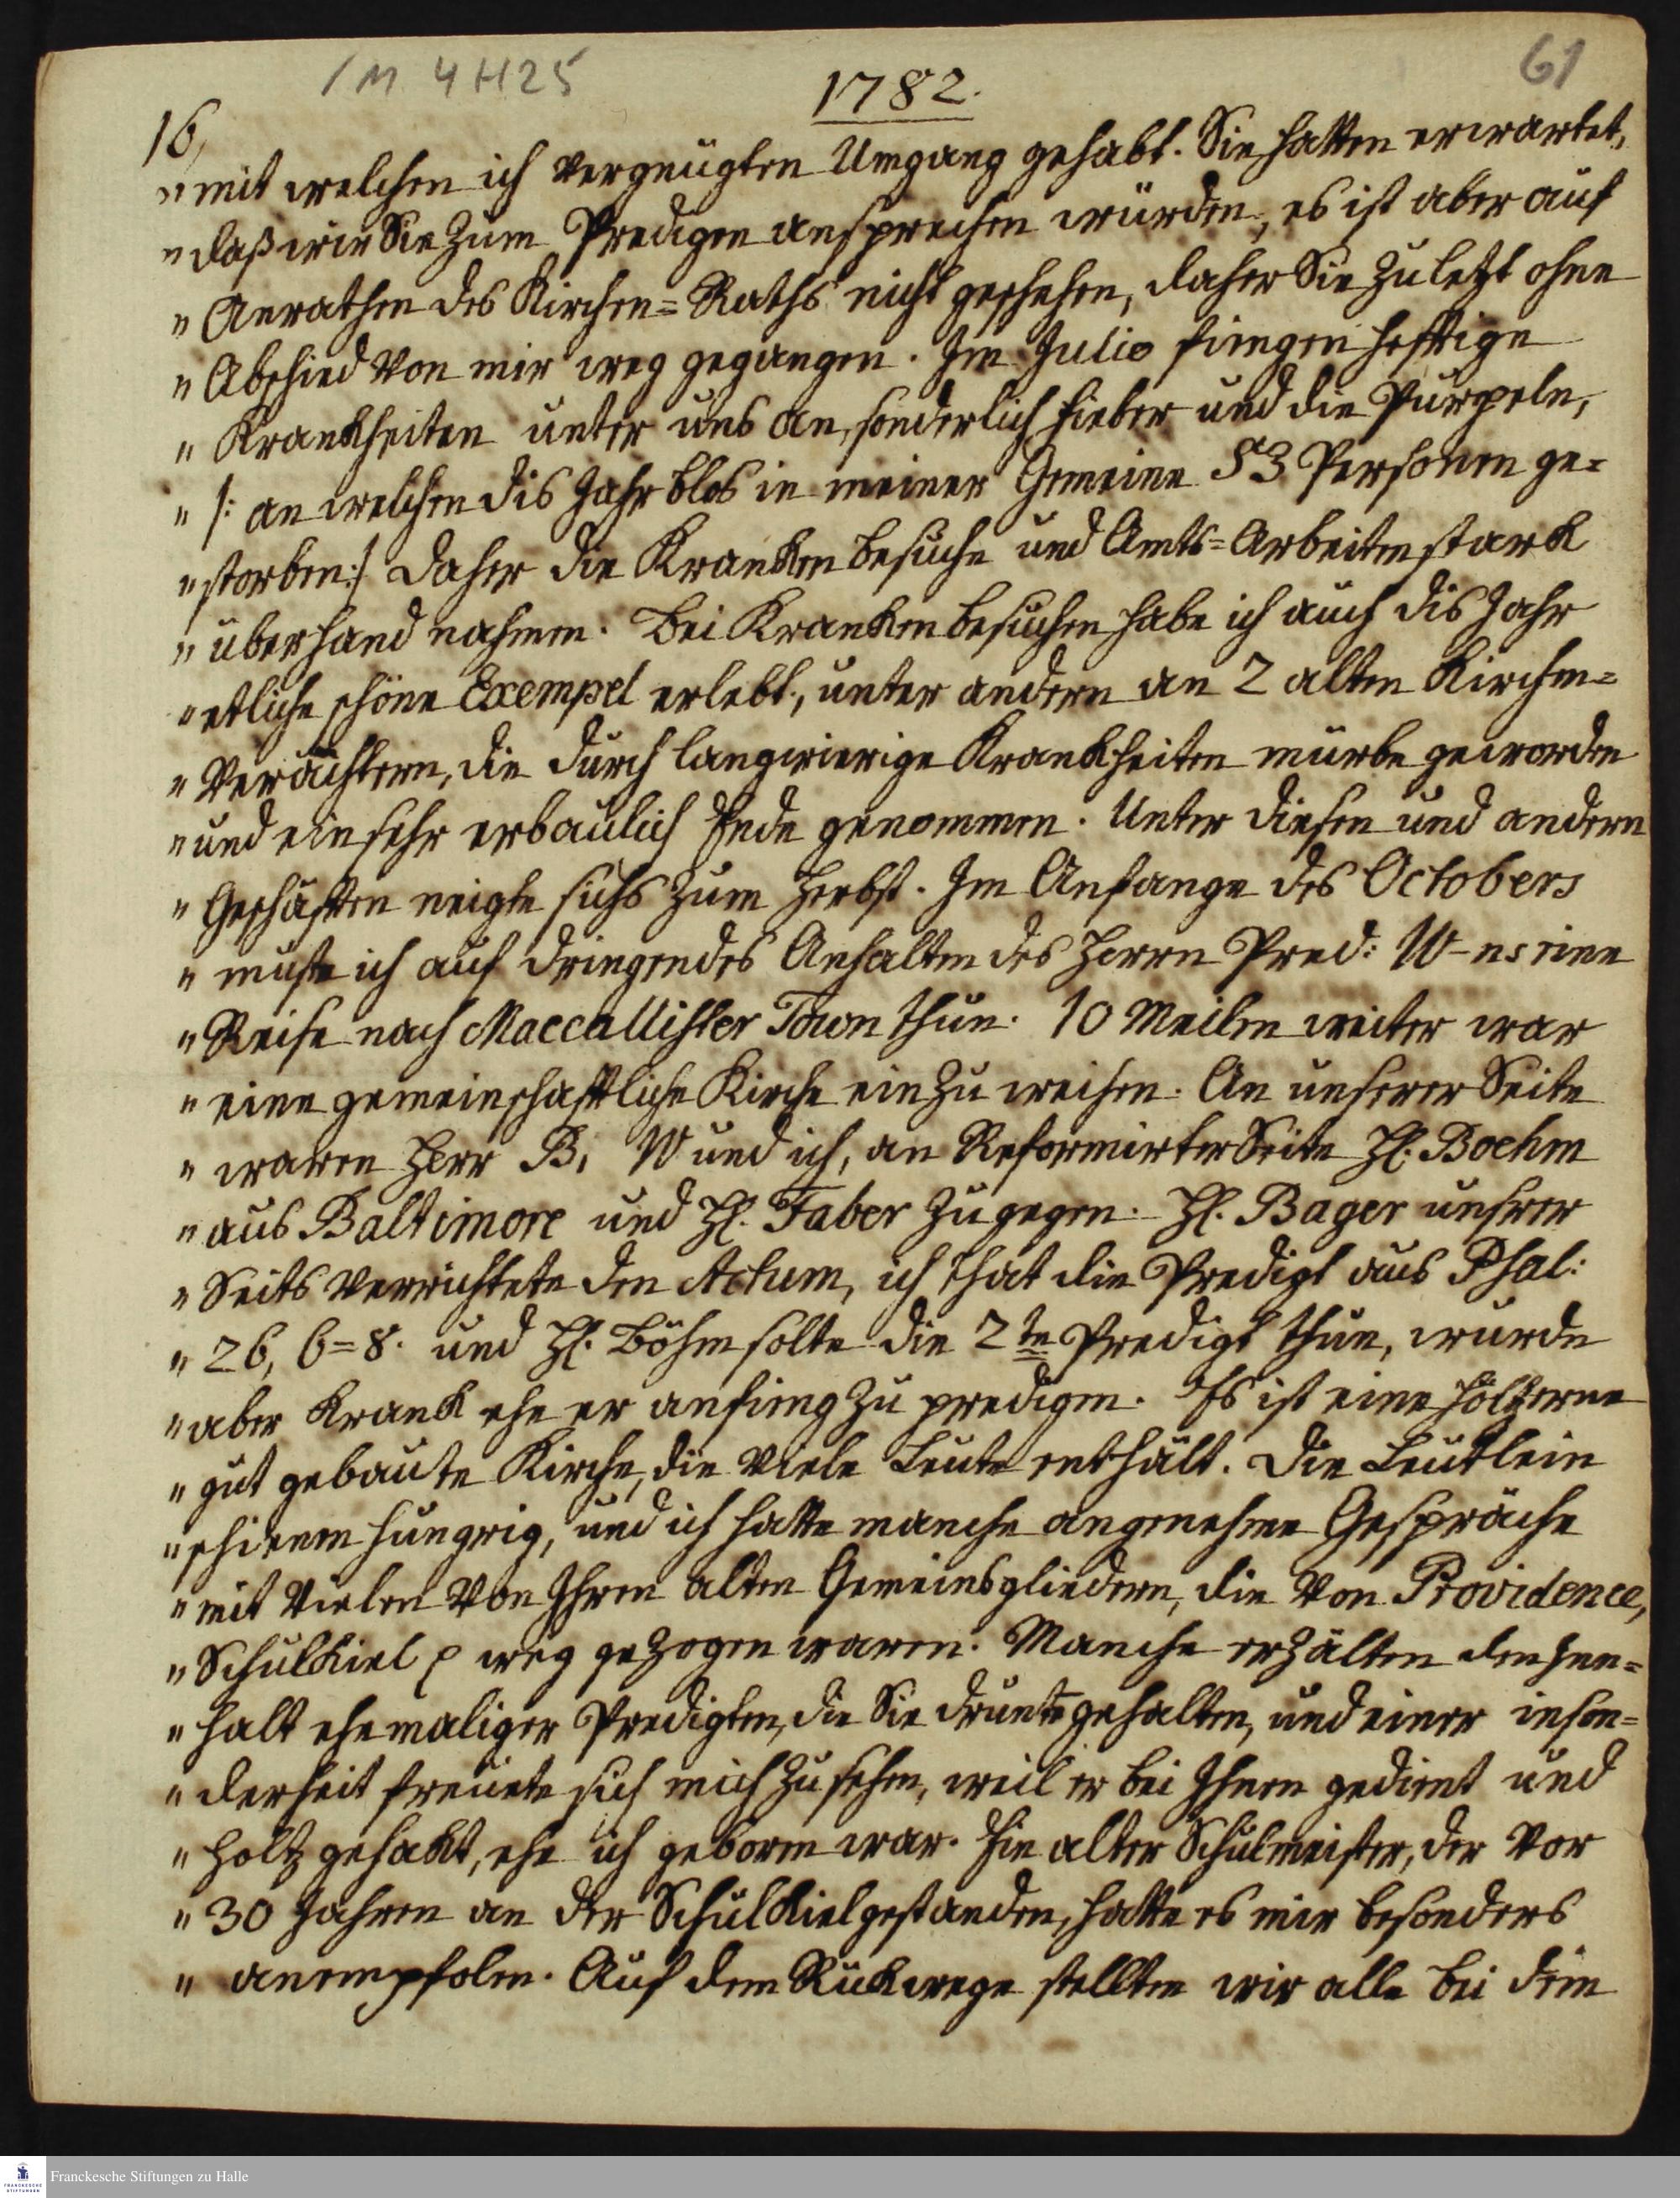 /M 4 H 25
61
1782.
16,
" mit welchen ich vergnügten Umgang gehabt. Sie hatten erwartet,
" daß wir Sie zum Predigen ansprechen würden, es ist aber auf
" Anrathen des Kirchen=Raths nicht geschehen, daher Sie zuletzt ohne
" Abschied von mir weg gegangen. Im Julio fiengen hefftige
" Krankheiten unter uns an, sonderlich Fieber und die Purpeln,
" /: an welchen dis Jahr blos in meiner Gemeine 53 Personen ge=
" storben :/ daher die Krankenbesuche und Amts=Arbeiten stark
" überhand nahmen. Bei Krankenbesuchen habe ich auch dis Jahr
" etliche schöne Exempel erlebt, unter andern an 2 alten Kirchen=
" Verächtern, die durch langwierige Krankheiten mürbe geworden
" und ein sehr erbaulich Ende genommen. Unter diesen und andern
" Geschäften neigte sichs zum Herbst. Im Anfange des Octobers
" muste ich auf dringendes Anhalten des Herrn Pred: W-ns eine
" Reise nach Maccallister Town thun. 10 Meilen weiter war
" eine gemeinschaftliche Kirche einzuweihen. An unserer Seite
" waren Herr B, W und ich, an Reformirter Seite H. Boehm
" aus Baltimore und H. Faber zugegen. H. Bager unsrer
" Seits verrichtete den Actum, ich that die Predigt aus Psal:
" 26, 6=8. und H. Böhm solte die 2te Predigt thun, wurde
" aber krank ehe er anfieng zu predigen. Es ist eine höltzerne
" gut gebaute Kirche, die viele Leute enthält. Die Leutlein
" schienen hungrig, und ich hatte manche angenehme Gespräche
" mit vielen von Ihren alten Gemeinsgliedern, die von Providence,
" Schulkiel p weg gezogen waren. Manche erzälten den Inn=
" halt ehemaliger Predigten, die Sie drunten gehalten, und einer inson=
" derheit freuete sich mich zu sehen, weil er bei Ihnen gedient und
" Holtz gehakt, ehe ich geboren war. Ein alter Schulmeister, der vor
" 30 Jahren an der Schulkiel gestanden, hatte es mir besonders
" anempfolen. Auf dem Rükwege stellten wir alle bei dem
Franckesche Stiftungen zu Halle
FRANCKESCHE
STIFTUNGEN